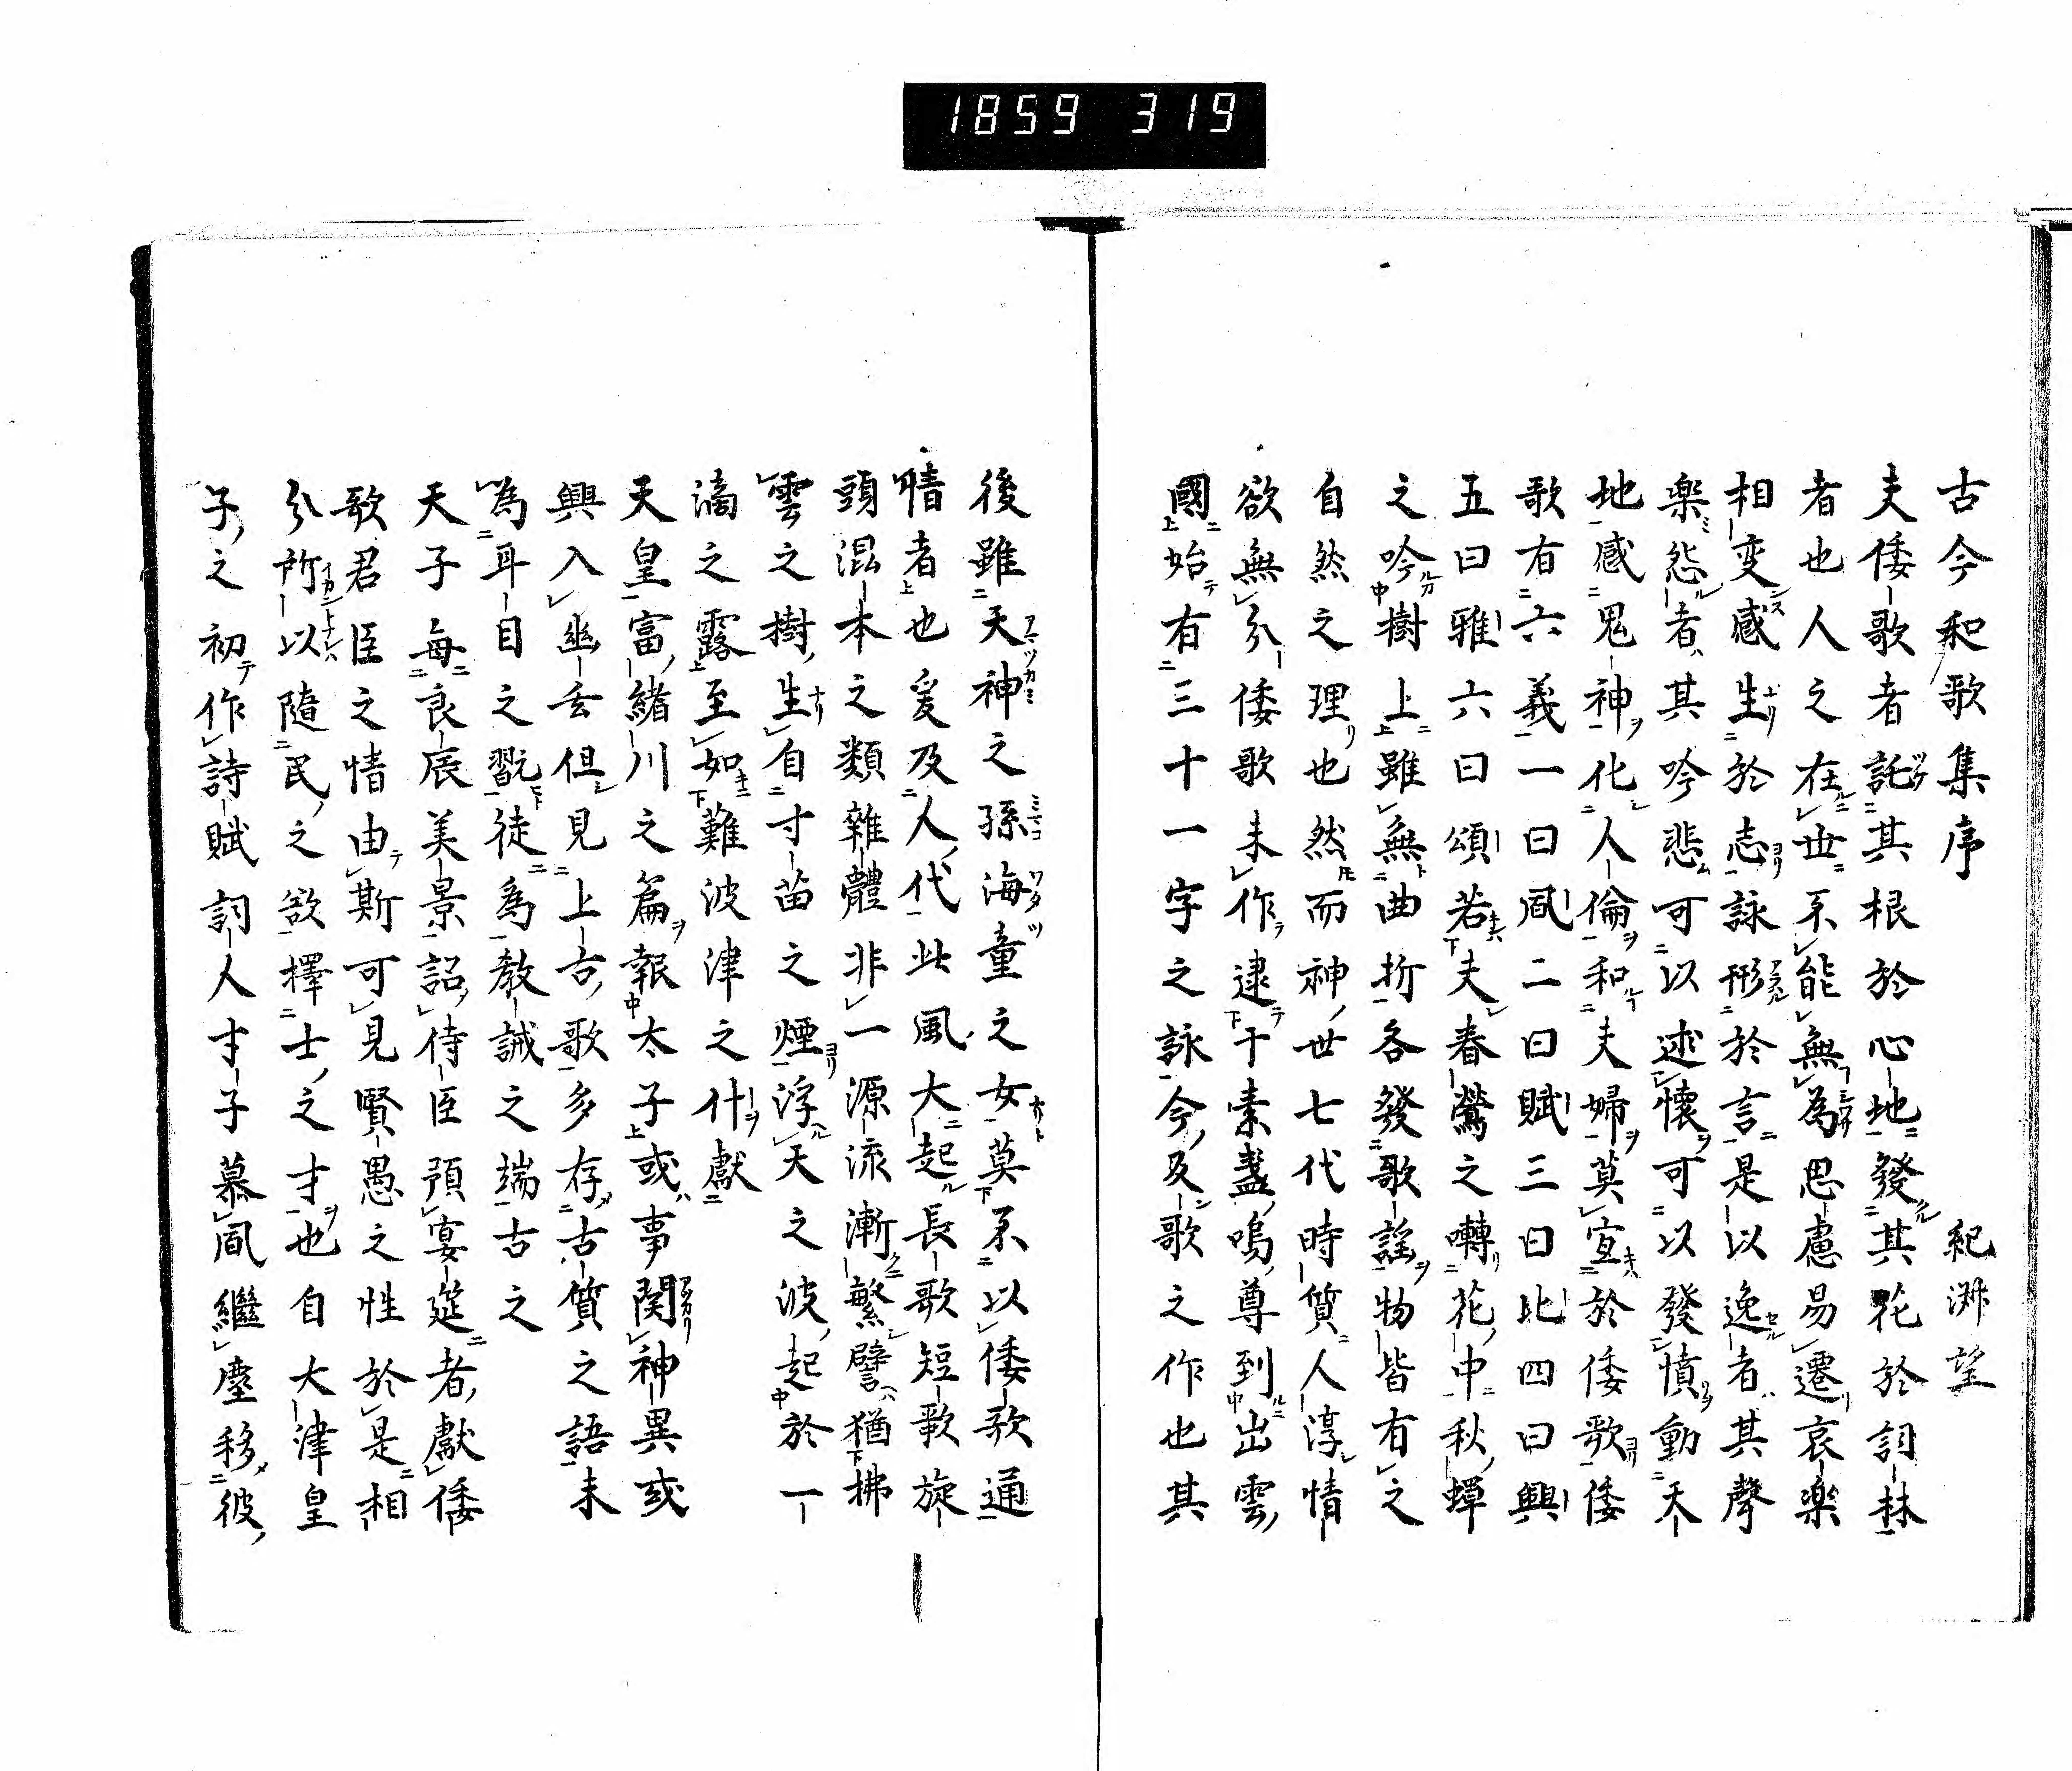 1859 319
古今和歌集序 紀淑望
夫倭歌者託其根於心地發其花於詞林
者也人之在世不能無為思慮易遷哀樂
相変感生於志詠形於言是以逸者其聲
楽怨者其吟悲可以述懐可以發憤動天
地感鬼神化人倫和夫婦莫宣於倭歌倭
歌有六義一曰風二曰賦三曰比四曰興
五曰雅六曰頌若夫春鶯之囀花中秋蟬
之吟樹上雖無曲折各發歌謡物皆有之
自然之理也然而神世七代時質人淳情
欲無分倭歌未作逮于素盞嗚尊到出雲
國始有三十一字之詠今及歌之作也其
後雖天神之孫海童之女莫不以倭歌通
情者也爰及人代此風大起長歌短歌旋
頭混本之類雜體非一源流漸繁譬猶拂
雲之樹生自寸苗之煙浮天之波起於一
滴之露至如難波津之什獻
天皇富緒川之篇報太子或事関神異或
興入幽玄但見上古歌多存古質之語未
為耳目之翫徒為教誡之端古之
天子毎良辰美景詔侍臣預宴莚者獻倭
歌君臣之情由斯可見賢愚之性於是相
分所以隨民之欲擇士之才也自大津皇
子之初作詩賦詞人才子慕風繼塵移彼